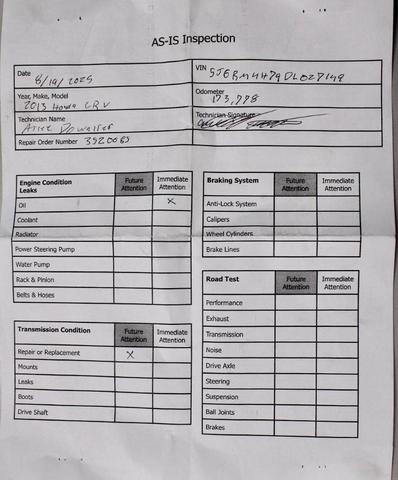 AS-IS Inspection
Date 8/19/2025
VIN 5J6RM4H79DL027149
Year, Make, Model
2013 Honda CRV
Odometer
173,778
Technician Name
Technician Signature
Repair Order Number 3920065
Engine Condition Leaks Future Attention Immediate Attention
Oil X
Coolant
Radiator
Power Steering Pump
Water Pump
Rack & Pinion
Belts & Hoses
Transmission Condition Future Attention Immediate Attention
Repair or Replacement X
Mounts
Leaks
Boots
Drive Shaft
Braking System Future Attention Immediate Attention
Anti-Lock System
Calipers
Wheel Cylinders
Brake Lines
Road Test Future Attention Immediate Attention
Performance
Exhaust
Transmission
Noise
Drive Axle
Steering
Suspension
Ball Joints
Brakes